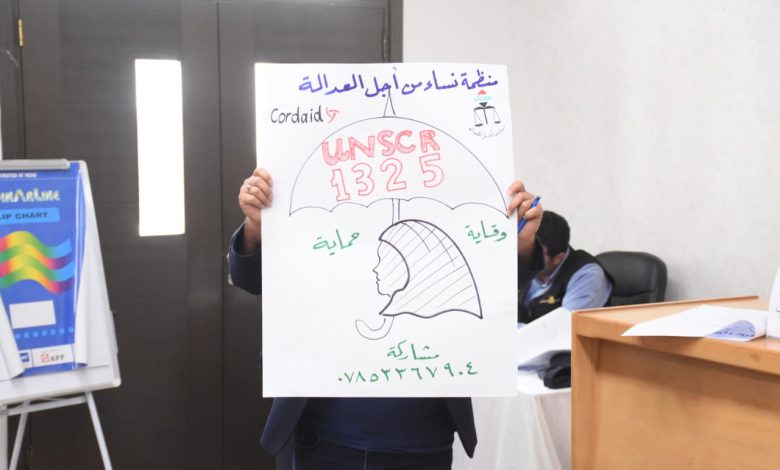 منظمة نساء من أجل العدالة
Cordaid
UNSCR
1325
وقاية
حماية
مشاركة
٠٧٨٥٣٣٦٧٩٠٤
LIP CHART
APP